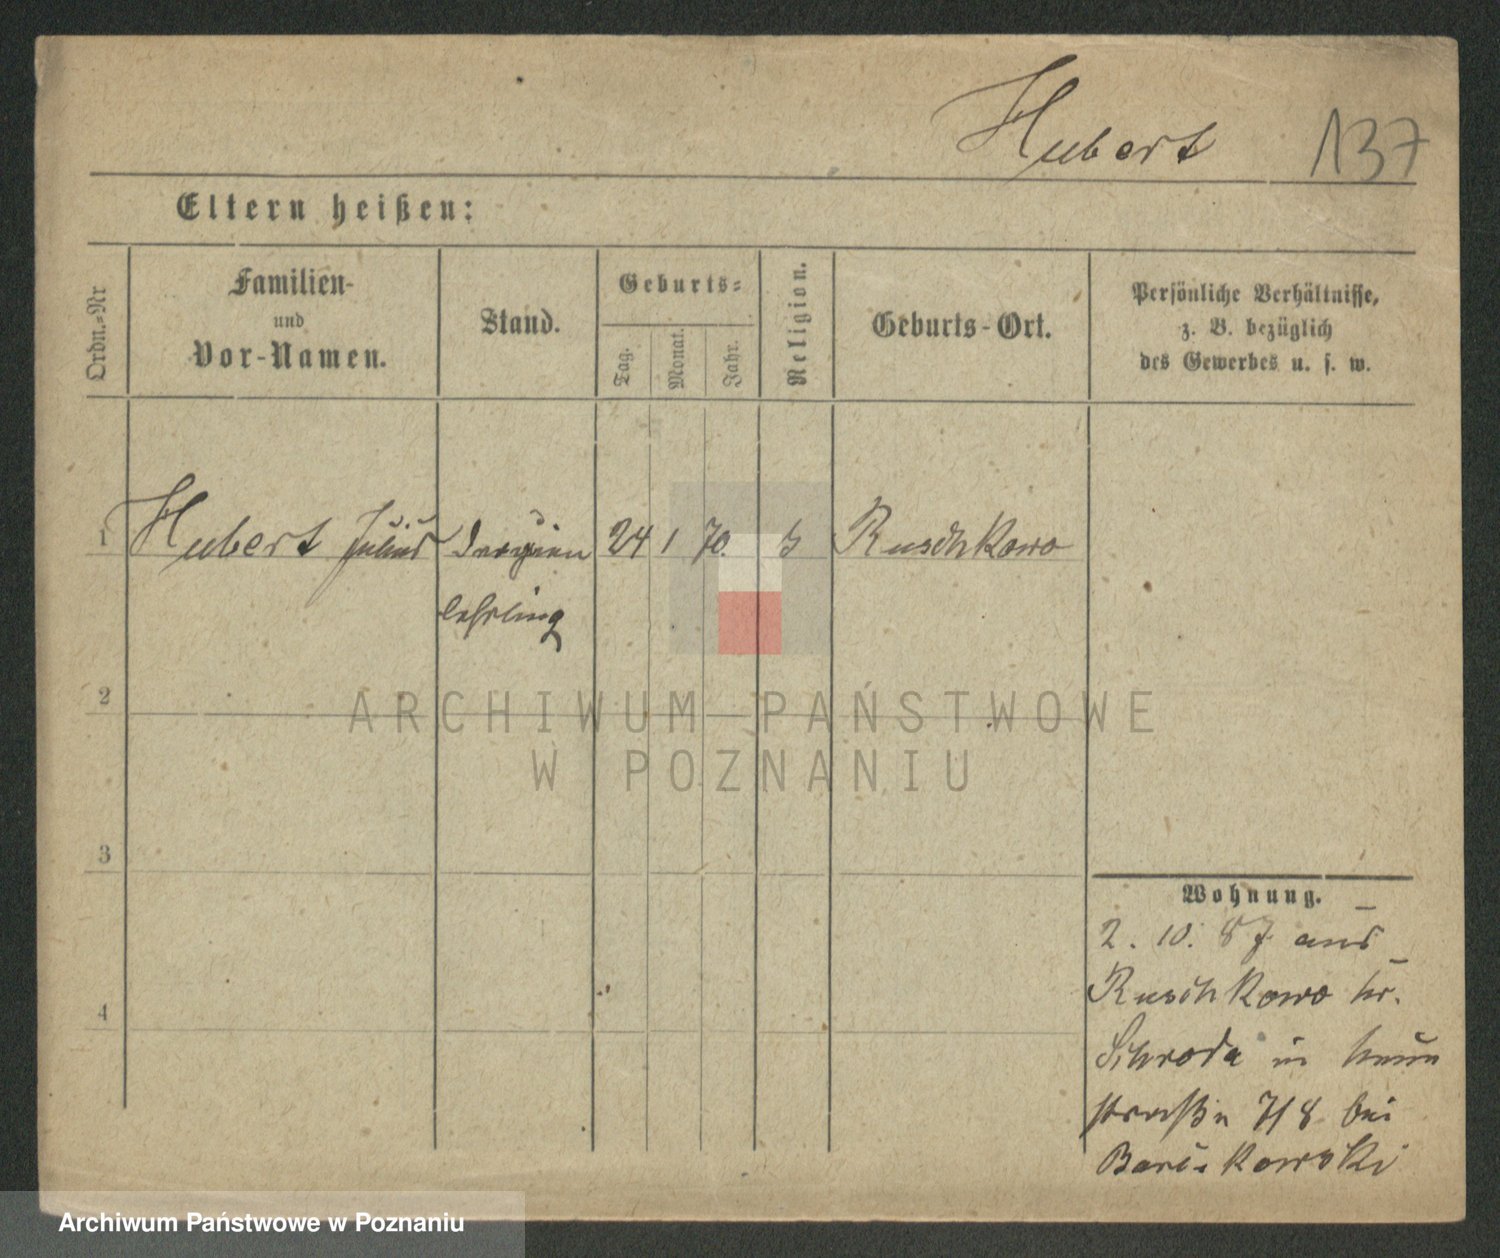 Hubert 137
Eltern heißen:
Ordn.=Nr
Familien-
und
Vor-Namen.
Stand.
Geburts=
Tag.
Monat.
Jahr.
Religion.
Geburts-Ort.
Persönliche Verhältnisse,
z. B. bezüglich
des Gewerbes u. s. w.
1 Hubert Julius 24 1 70. Ruschkowo
lehrling
2
ARCHIWUM PAŃSTWOWE
W POZNANIU
3
Wohnung.
2. 10. 87 aus
Ruschkowo kr.
4
Schroda in
straße 7/8 bei
Archiwum Państwowe w Poznaniu